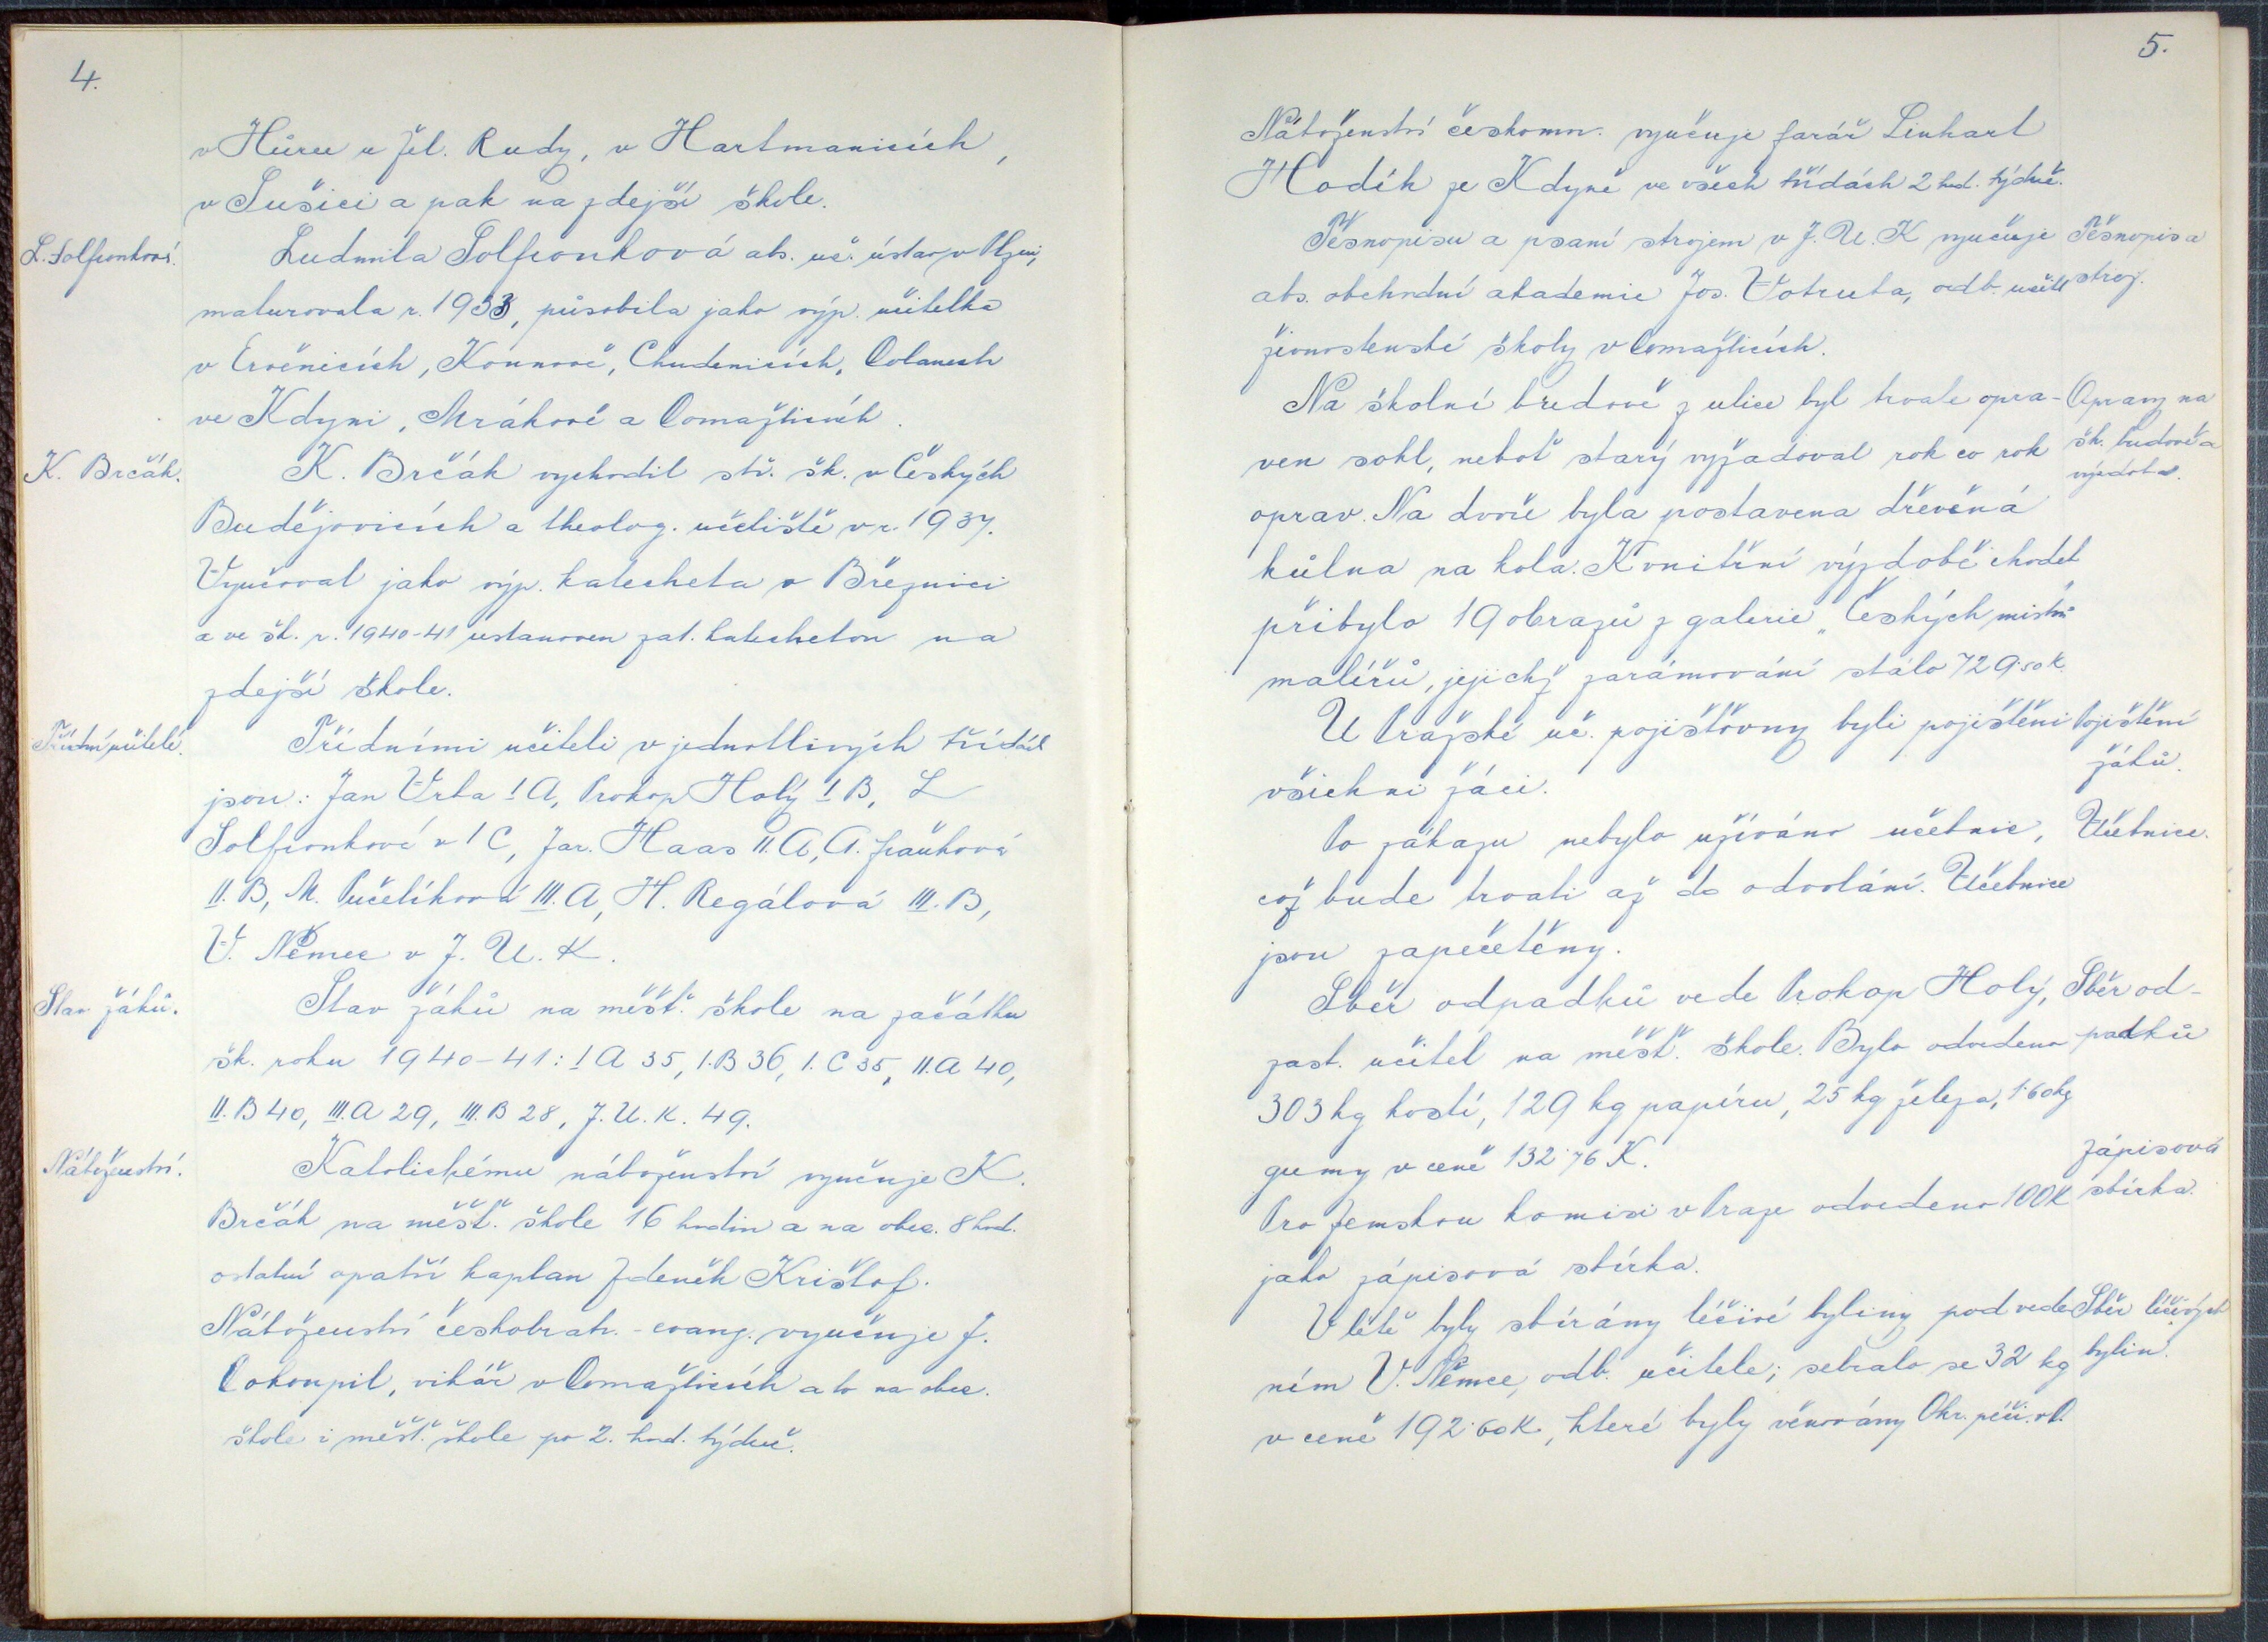 4.
v Hůrce u Žel. Rudy, v Hartmanicích,
v Sušici a pak na zdejší škole.
L. Solfronková.
Ludmila Solfronková abs. uč. ústav v Plzni,
maturovala r. 1933, působila jako výp. učitelka
v Ervěnicích, Kounově, Chudenicích, Dolanech
ve Kdyni, Mrákově a Domažlicích.
K. Brčák.
K. Brčák vychodil stř. šk. v Českých
Budějovicích a theolog. učeliště v r. 1937.
Vyučoval jako výp. katecheta v Březnici
a ve šk. r. 1940-41 ustanoven zat. katechetou na
zdejší škole.
Třídní učitelé.
Třídními učiteli v jednotlivých třídách
jsou: Jan Vrba I A, Prokop Holý I B, L
Solfronková v I C, Jar. Haas II. A, A.
II. B, M. Pučelíková III. A, H. Regálová III. B,
V. Němec v J. U. K.
Stav žáků.
Stav žáků na měšť. škole na začátku
šk. roku 1940-41: I A 35, I. B 36, I. C 35, II. A 40,
II. B 40, III. A 29, III. B 28, J. U. K. 49.
Náboženství.
Katolickému náboženství vyučuje K.
Brčák na měšť. škole 16 hodin a na obec. 8 hod.
ostatní opatří kaplan Zdeněk Krištof.
Náboženství českobrat. - evang. vyučuje J.
Dokoupil, vikář v Domažlicích a to na obec.
škole i měšť. škole po 2. hod. týdně.
5.
Náboženství českomor. vyučuje farář Linhart
Hodík ze Kdyně ve všech třídách 2 hod. týdně.
Těsnopisu a psaní strojem v J. U. K vyučuje
Těsnopis a
abs. obchodní akademie Jos. Votruba, odb. učitel
stroj.
živnostenské školy v Domažlicích.
Na školní budově z ulice byl trvale opra-
Opravy na
ven sokl, neboť starý vyžadoval rok co rok
šk. budově a
výzdoba.
oprav. Na dvoře byla postavena dřevěná
kůlna na kola. K vnitřní výzdobě chodeb
přibylo 19 obrazů z galerie „Českých mistrů
malířů, jejichž zarámování stálo 729.50 K.
U Pražské uč. pojišťovny byli pojištěni
Pojištění
všichni žáci.
žáků.
Po zákazu nebylo užíváno učebnic,
Učebnice.
což bude trvati až do odvolání. Učebnice
jsou zapečetěny.
Sběr odpadků vede Prokop Holý,
Sběr od-
zast. učitel na měšť. škole. Bylo odvedeno
padků
303 kg kostí, 129 kg papíru, 25 kg železa, 1.60 kg
gumy v ceně 132.76 K.
Zápisová
Pro Zemskou komisi v Praze odvedeno 100 K
sbírka.
jako zápisová sbírka.
V létě byly sbírány léčivé byliny pod vede
Sběr léčivých
ním V. Němce, odb. učitele; sebralo se 32 kg
bylin.
v ceně 192.60 K, které byly věnovány Okr. péči o ml.